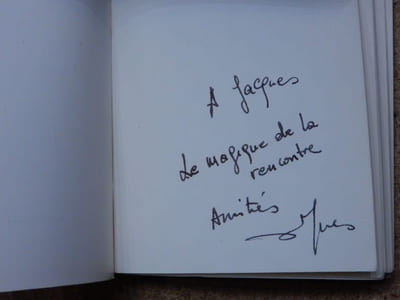 A Jacques
Le magique de la
rencontre
Amitiés
Yves